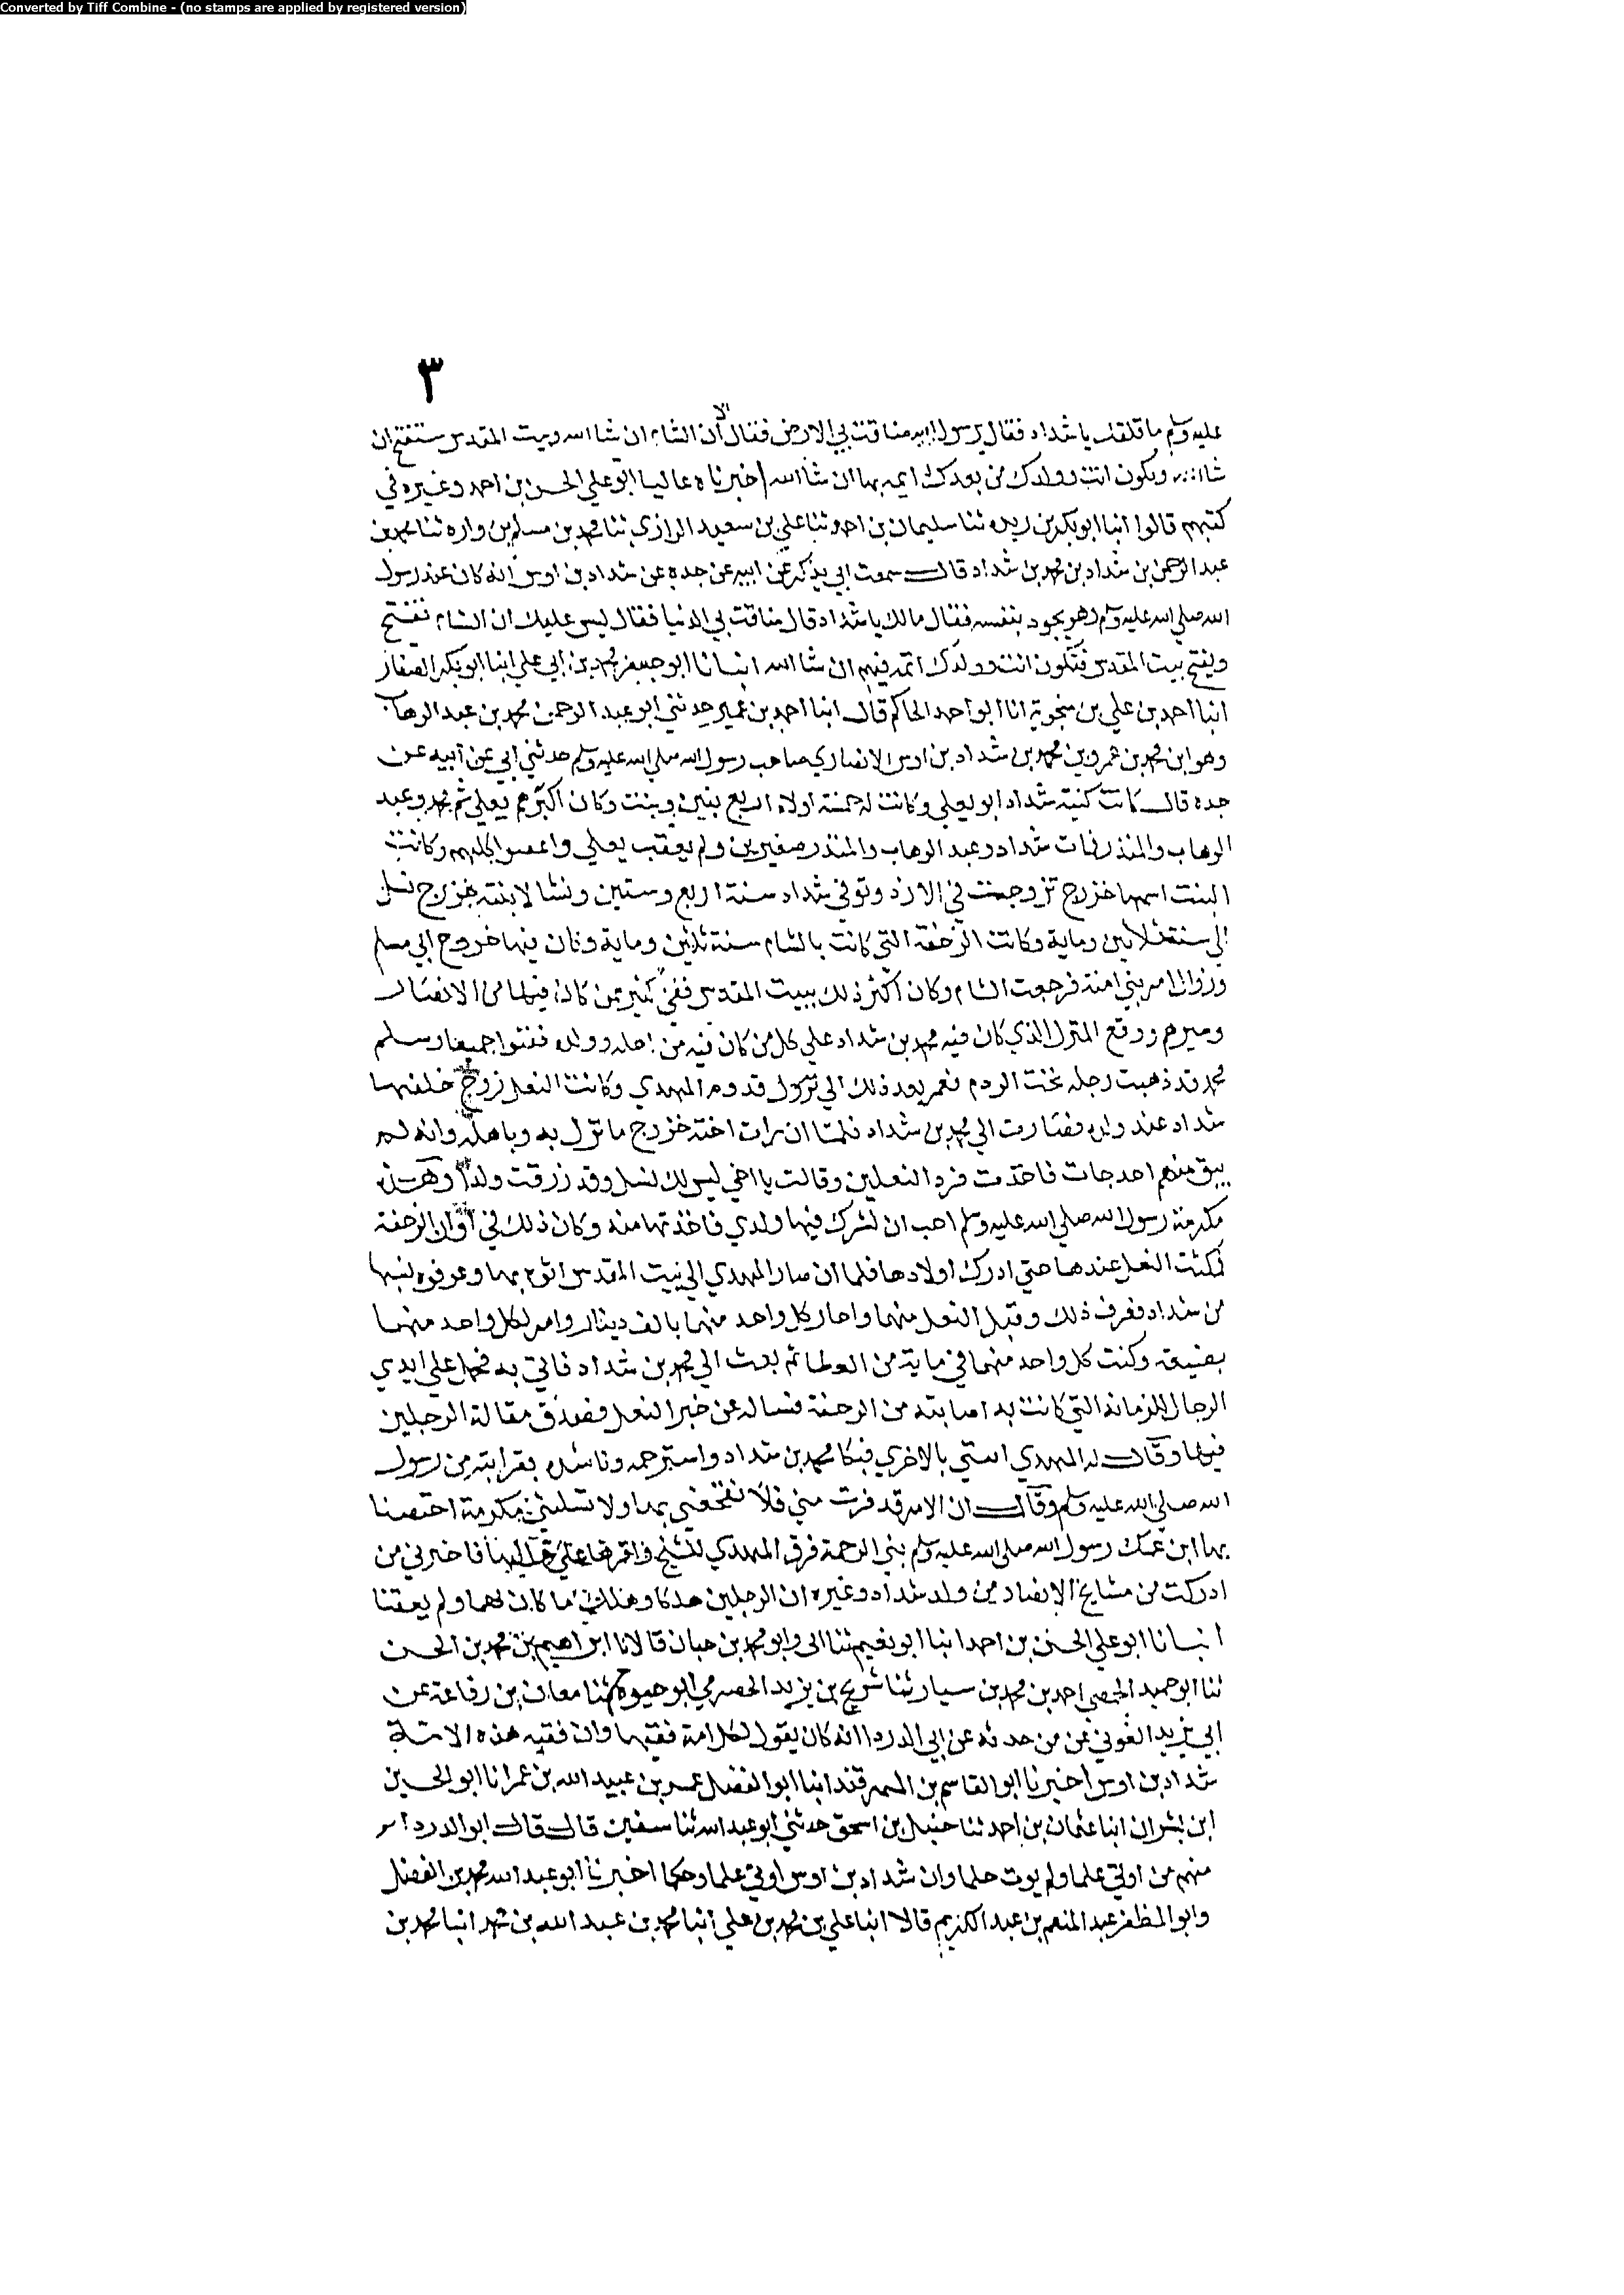 Converted by Tiff Combine - (no stamps are applied by registered version)
٣
عليه وسلم ما قلقك يا شداد فقال يرسول الله ضاقت بي الارض فقال الا ان الشام ان شا الله وبيت المقدس ستفتح ان
شا الله وتكون انت وولدك من بعدك ايمه بها ان شا الله اخبرناه عاليا ابو علي الحسن بن احمد وغيره في
كتبهم قالوا انبا ابو بكر بن ريده ثنا سليمان بن احمد ثنا علي بن سعيد الرازي ثنا محمد بن مسلم بن واره ثنا محمد بن
عبد الرحمن بن شداد بن محمد بن شداد قال سمعت ابي يذكر عن ابيه عن جده عن شداد بن اوس انه كان عند رسول
الله صلي الله عليه وسلم وهو يجود بنفسه فقال مالك يا شداد قال ضاقت بي الدنيا فقال ليس عليك ان الشام تفتح
ويفتح بيت المقدس فتكون انت وولدك ائمه فيهم ان شا الله انبانا ابو جعفر محمد بن ابي علي انبا ابو بكر الصفار
انبا احمد بن علي بن منجوية انا ابو احمد الحاكم قال انبا احمد بن عمير حدثني ابو عبد الرحمن محمد بن عبد الوهاب
وهو ابن محمد بن عمرو بن محمد بن شداد بن اوس الانصاري صاحب رسول الله صلي الله عليه وسلم حدثني ابي عن ابيه عن
جده قال كانت كنية شداد ابو يعلي وكانت له خمسة اولاد اربع بنين وبنت وكان اكبرهم يعلي ثم محمد وعبد
الوهاب والمنذر فمات شداد وعبد الوهاب والمنذر صغيرين ولم يعقب يعلي واعقبوا كلهم وكانت
البنت اسمها خزرج تزوجت في الازد وتوفي شداد سنة اربع وستين ونشا لابنته خزرج نسل
الي سنة ثلاثين وماية وكانت الرجفة التي كانت بالشام سنة ثلاثين وماية وكان فيها خروج ابي مسلم
وزوال امر بني امية فرجعت الشام وكان اكثر ذلك ببيت المقدس ففني كثير ممن كان فيها من الانصار
وغيرهم ووقع المنزل الذي كان فيه محمد بن شداد علي كل من كان فيه من اهله وولده ففنوا جميعا وسلم
محمد قد ذهبت رجله تحت الردم فعمر بعد ذلك الي نزول قدوم المهدي وكانت النعل زوج خلفها
شداد عند ولده فصارت الي محمد بن شداد فلما ان رات اخته خزرج ما نزل به وباهله وانه لم
يبق منهم احد جات فاخذت فرد النعلين وقالت يا اخي ليس لك نسل وقد رزقت ولدا وهذه
مكرمة رسول الله صلي الله عليه وسلم احب ان تشرك فيها ولدي فاخذتها منه وكان ذلك في اوان الرجفة
فمكثت النعل عندها حتي ادرك اولادها فلما ان صار المهدي الي بيت المقدس اتوه بها وعرفوه نسبها
من شداد فعرف ذلك وقبل النعل منهما واجاز كل واحد منهما بالف دينار وامر لكل واحد منهما
بضيعة وكتب كل واحد منهما في ماية من العطا ثم بعث الي محمد بن شداد فاتي به يحمل علي ايدي
الرجال للزمانة التي كانت به اصابته من الرجفة فساله عن خبر النعل فصدق مقالة الرجلين
فيها وقال له المهدي ائتني بالاخري فبكا محمد بن شداد واسترحمه وناشده بقرابته من رسول
الله صلي الله عليه وسلم وقال ان الامر قد قرب مني فلا تفجعني بها ولا تسلبني مكرمة اختصنا
بها ابن عمك رسول الله صلي الله عليه وسلم نبي الرحمة فرق المهدي للشيخ واقرها علي حالها فاخبرني من
ادركت من مشايخ الانصار من ولد شداد وغيره ان الرجلين هلكا وهلك ما كان لهما ولم يعقبا
انبانا ابو علي الحسن بن احمد انبا ابو نعيم ثنا ابي وابو محمد بن حيان قالا نا ابراهيم بن محمد بن الحسن
ثنا ابو حميد الحمصي احمد بن محمد بن سيار ثنا شريح بن يزيد الحضرمي ابو حيوه ثنا معان بن رفاعة عن
ابي يزيد الغوثي عن من حدثه عن ابي الدردا انه كان يقول لكل امة فقيها وان فقيه هذه الامة
شداد بن اوس اخبرنا ابو القاسم بن السمرقندي انبا ابو الفضل عمر بن عبيد الله بن عمر انا ابو الحسين
ابن بشران انبا عثمان بن احمد ثنا حنبل بن اسحق حدثني ابو عبد الله ثنا سفين قال قال ابو الدردا
منهم من اوتي علما ولم يوت حلما وان شداد بن اوس اوتي علما وحكما اخبرنا ابو عبد الله محمد بن الفضل
وابو المظفر عبد المنعم بن عبد الكريم قالا انبا علي بن محمد بن علي انبا محمد بن عبد الله بن محمد انبا محمد بن